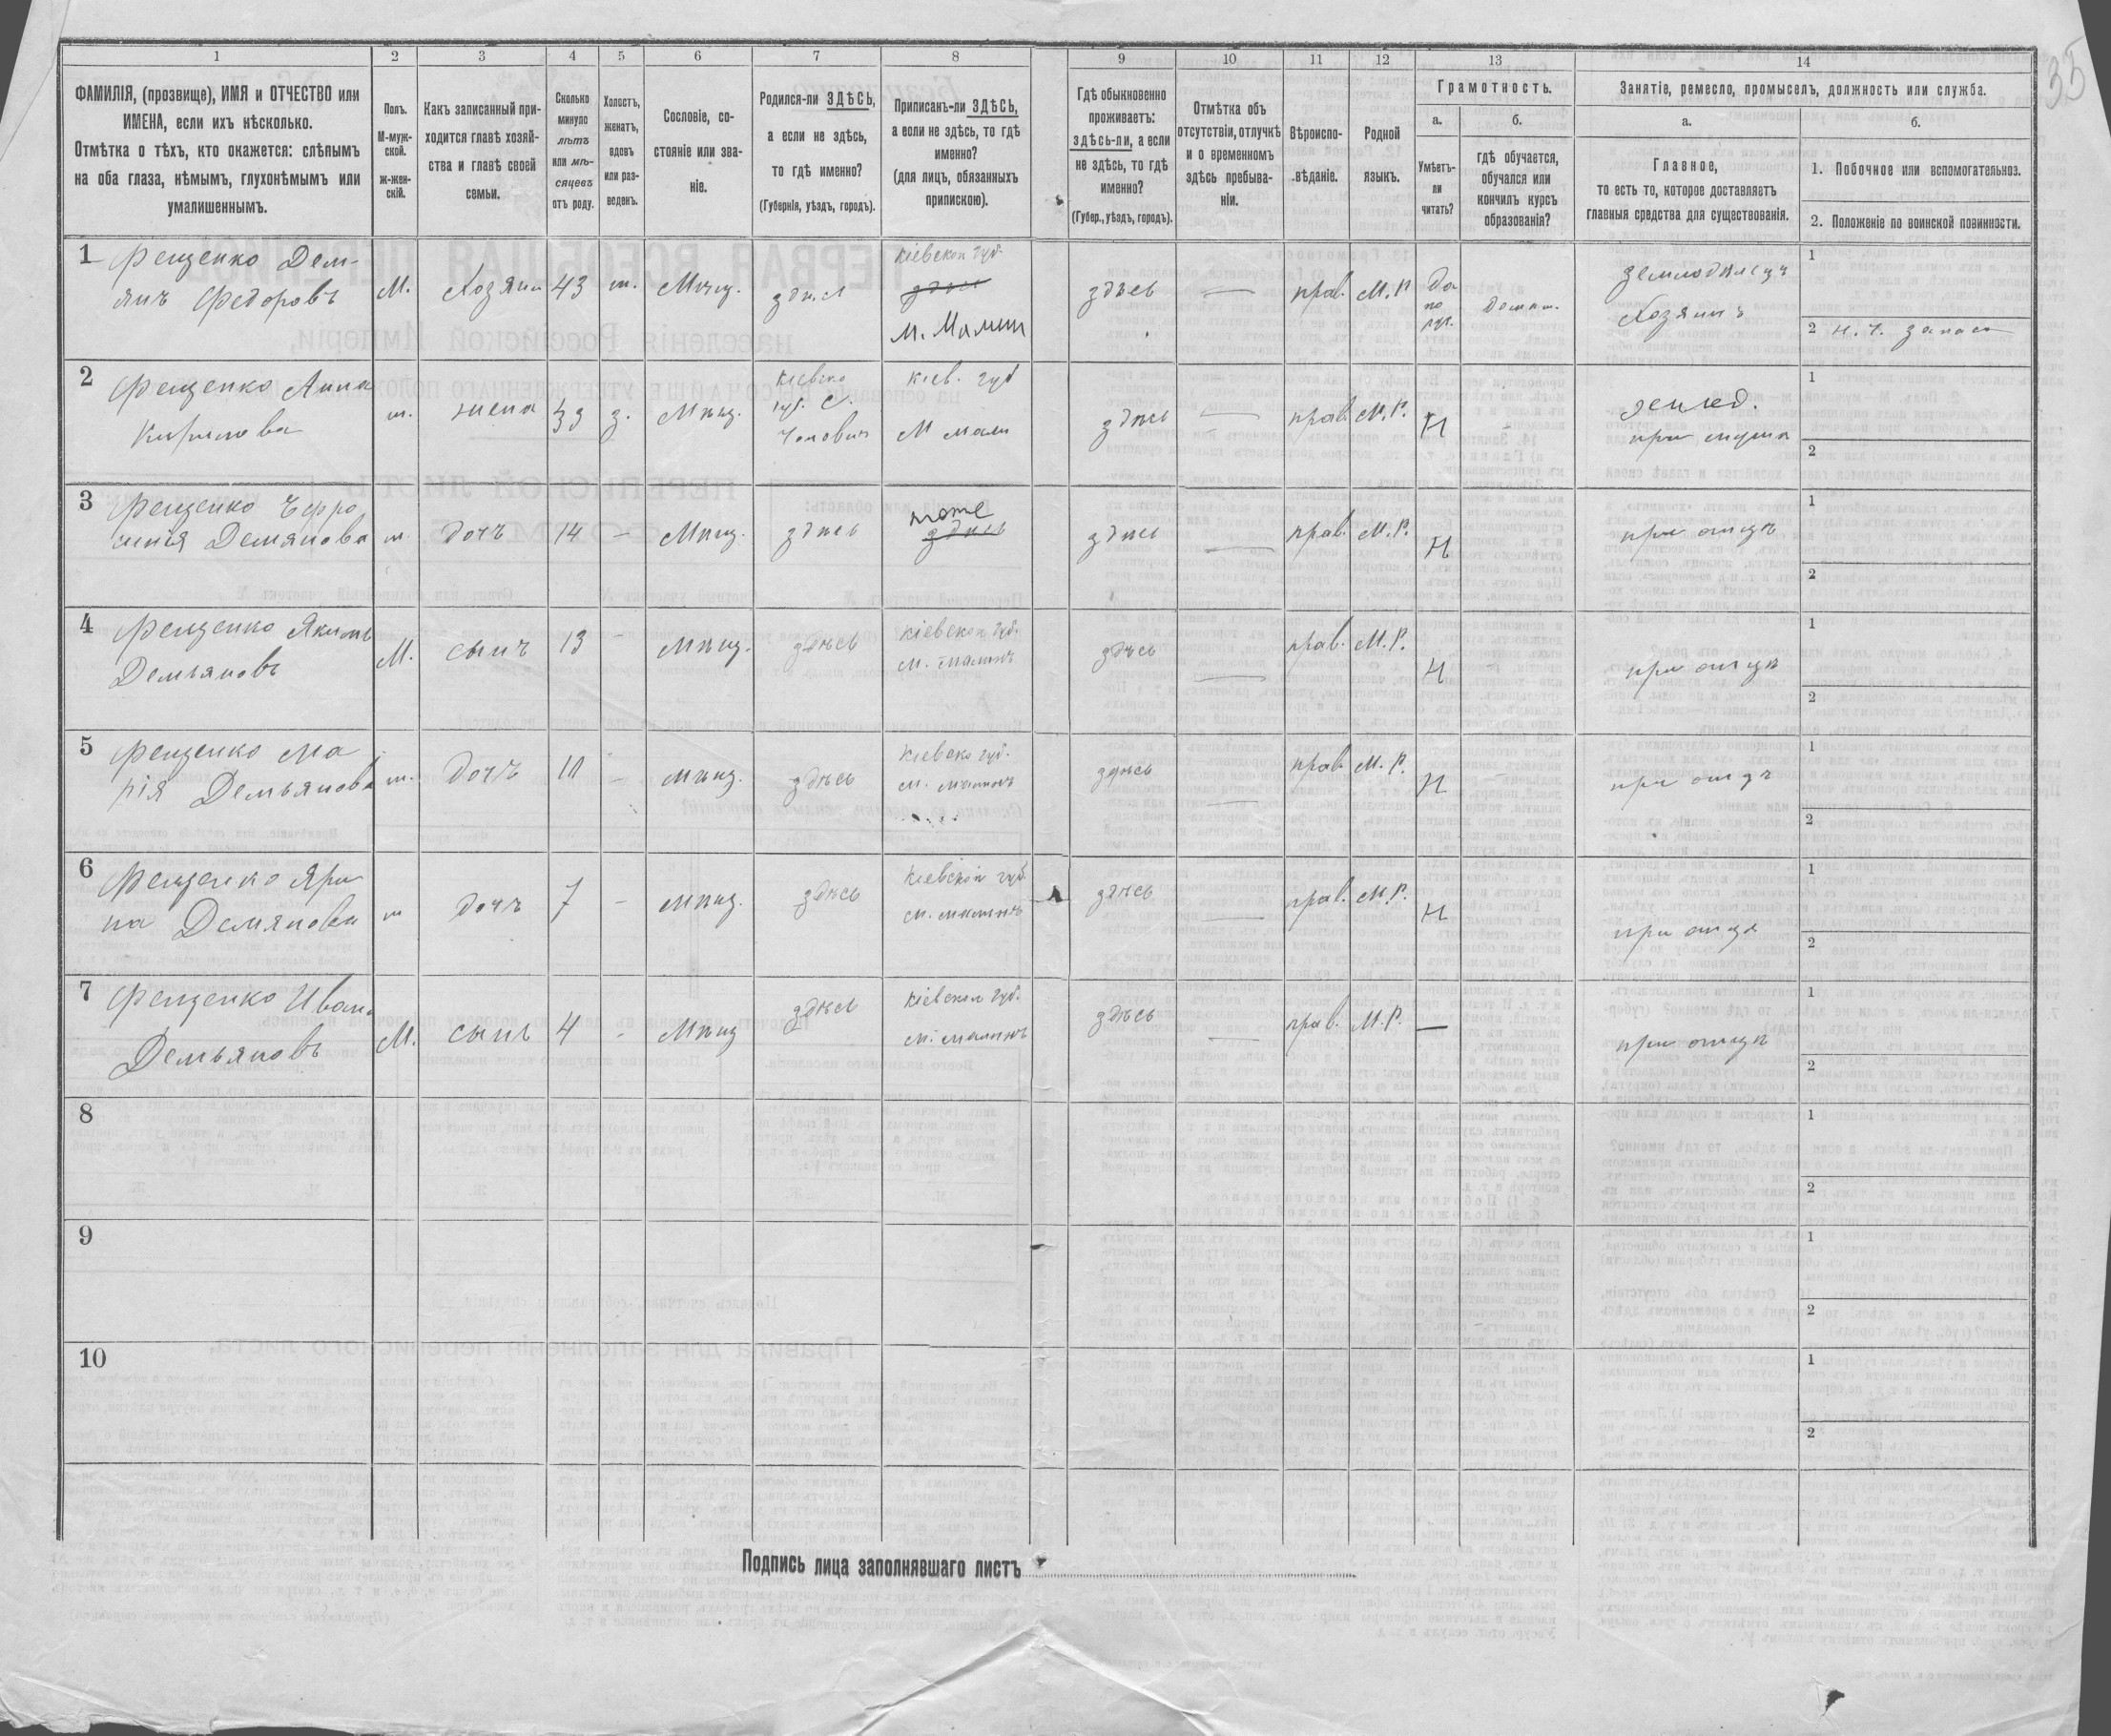 35
1 2 3 4 5 6 7 8 9 10 11 12 13 14
ФАМИЛІЯ, (прозвище), ИМЯ и ОТЧЕСТВО или
ИМЕНА, если ихъ нѣсколько.
Отмѣтка о тѣхъ, кто окажется: слѣпымъ
на оба глаза, нѣмымъ, глухонѣмымъ или
умалишеннымъ.
Полъ.
М-муж-
ской.
ж-жен-
скій.
Какъ записанный при-
ходится главѣ хозяй-
ства и главѣ своей
семьи.
Сколько
минуло
лѣтъ
или мѣ-
сяцевъ
отъ роду.
Холостъ,
женатъ,
вдовъ
или раз-
веденъ.
Сословіе, со-
стояніе или зва-
ніе.
Родился-ли ЗДѢСЬ,
а если не здѣсь,
то гдѣ именно?
(Губернія, уѣздъ, городъ).
Приписанъ-ли ЗДѢСЬ,
а если не здѣсь, то гдѣ
именно?
(для лицъ, обязанныхъ
припискою).
Гдѣ обыкновенно
проживаетъ:
ЗДѢСЬ-ЛИ, а если
не здѣсь, то гдѣ
именно?
(Губер., уѣздъ, городъ).
Отмѣтка объ
отсутствіи, отлучкѣ
и о временномъ
здѣсь пребыва-
ніи.
Вѣроиспо-
вѣданіе.
Родной
языкъ.
Грамотность.
а.
Умѣетъ-
ли
читать?
б.
гдѣ обучается,
обучался или
кончилъ курсъ
образованія?
Занятіе, ремесло, промыселъ, должность или служба.
а.
Главное,
то есть то, которое доставляетъ
главныя средства для существованія.
б.
1. Побочное или вспомогательное.
2. Положеніе по воинской повинности.
1 Фещенко Дем-
янъ Федоровъ
М. Хозяин 43 ж. Мѣщ. здѣсь
Кіевской губ.
здѣсь
м. Малин
здѣсь — прав. М.Р.
да
по
рус.
домаш.
земледѣлецъ
Хозяинъ
1
2 запас
2 Фещенко Анна
Кирилова
ж. жена 39 з. Мѣщ.
Кіевско
губ. С.
Кіев. губ
М мали
здѣсь — прав. М.Р. Н -
землед.
при мужа
1
2
3 Фещенко
Демянова ж. дочъ 14 - Мѣщ. здѣсь
тоже
здѣсь
здѣсь — прав. М.Р. Н
при отцѣ
1
2
4 Фещенко Якимъ
Демьяновъ
М. сынъ 13 - мѣщ. здѣсь
Кіевской губ.
м. малинъ
здѣсь — прав. М.Р. Н -
при отцѣ
1
2
5 Фещенко Ма
рія Демьянова
ж. дочъ 11 - мѣщ. здѣсь
Кіевско губ.
м. малинъ
здѣсь — прав М.Р. Н -
при отцѣ
1
2
6 Фещенко Яри
на Демянова
ж дочъ 7 - мѣщ. здѣсь
Кіевской губ
м. малинъ
здѣсь — прав. М.Р. Н
при отцѣ
1
2
7 Фещенко Иванъ
Демьяновъ
М. сынъ 4 - Мѣщ здѣсь
Кіевской губ.
м. малинъ
здѣсь — прав. М.Р. —
при отцѣ
1
2
8
1
2
9
1
2
10
1
2
Подпись лица заполнявшаго листъ